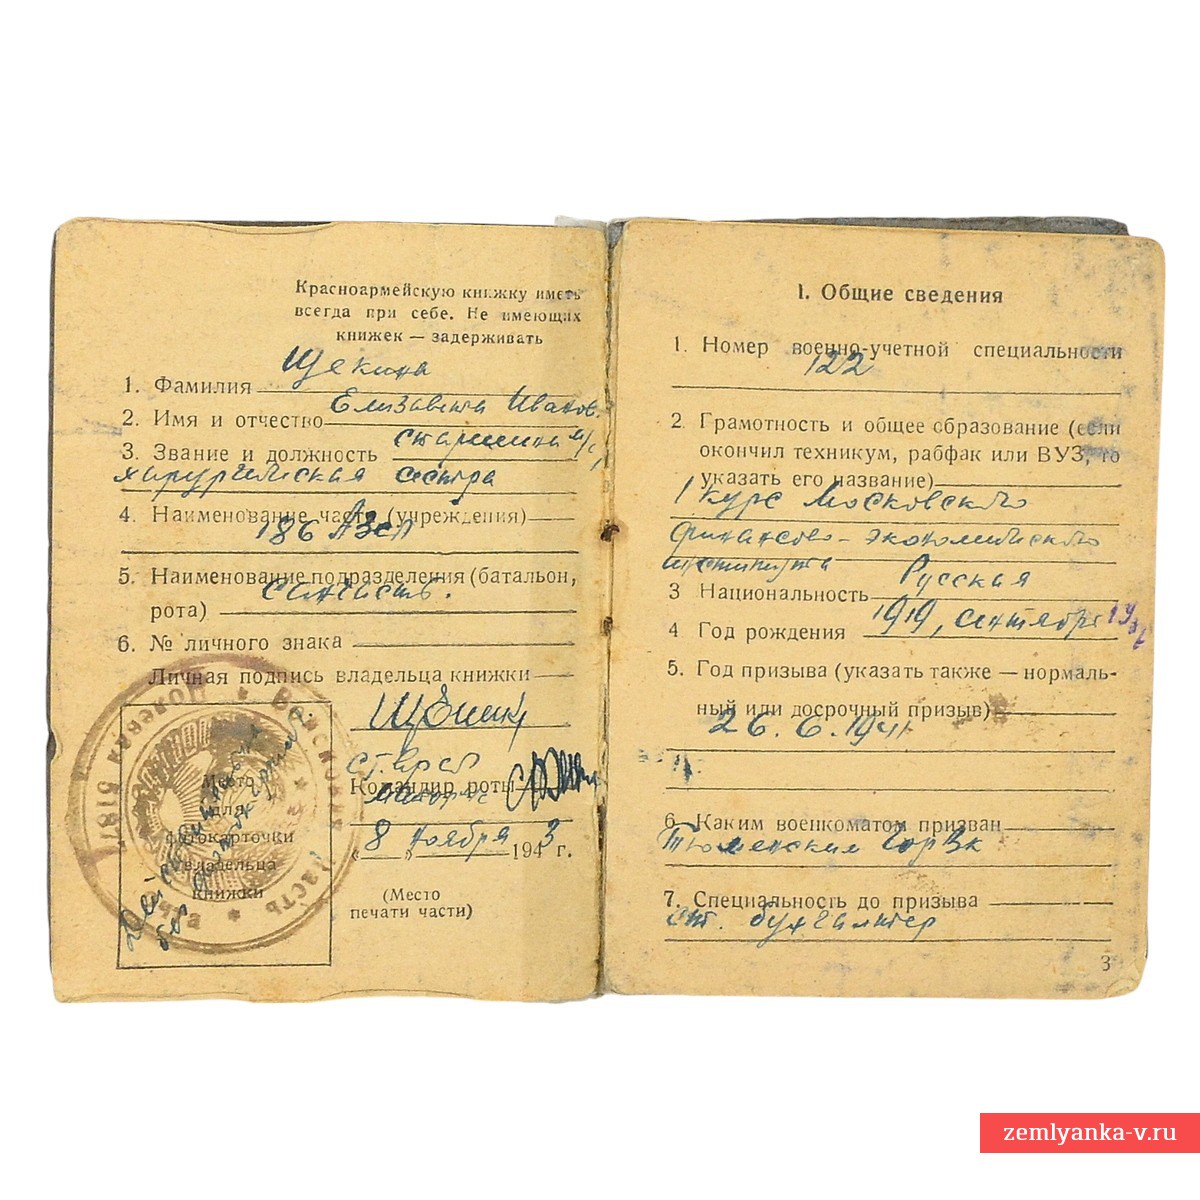 Красноармейскую книжку иметь
всегда при себе. Не имеющих
книжек — задерживать
1. Фамилия Щекина
2. Имя и отчество Елизавета Иванов.
3. Звание и должность старшина м/с,
хирургическая сестра
4. Наименование части (учреждения)
186 АЗСП
5. Наименование подразделения (батальон,
рота) санчасть.
6. № личного знака
Личная подпись владельца книжки
Командир роты
« 8 » ноября 1943 г.
(Место
печати части)
Место
для
фотокарточки
владельца
книжки
Полевая Войсковая часть
1. Общие сведения
1. Номер военно-учетной специальности
122
2. Грамотность и общее образование (если
окончил техникум, рабфак или ВУЗ, то
указать его название)
1 курс Московского
финансово-экономического
института
3 Национальность Русская
4 Год рождения 1919, сентябре
5. Год призыва (указать также — нормаль-
ный или досрочный призыв)
26.6.1941
6. Каким военкоматом призван
Тюменским ГорВК
7. Специальность до призыва
ст. бухгалтер
3
zemlyanka-v.ru